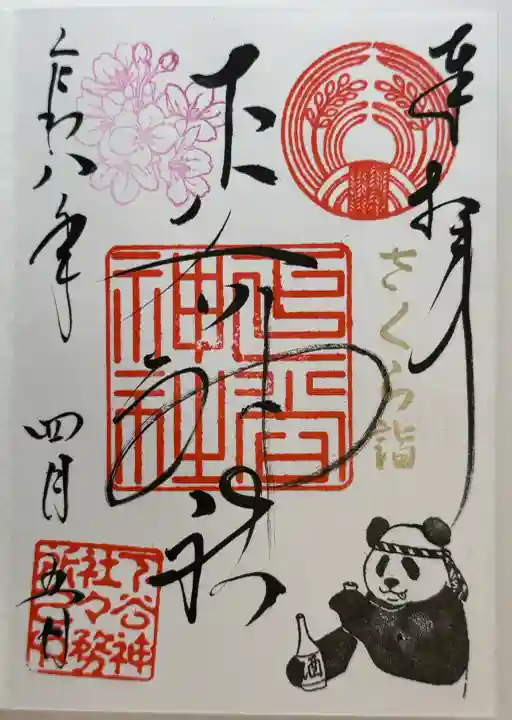 奉拝
さくら詣
下谷神社
下谷
神社
令和八年
四月五日
下谷神
社々務
所之印
酒